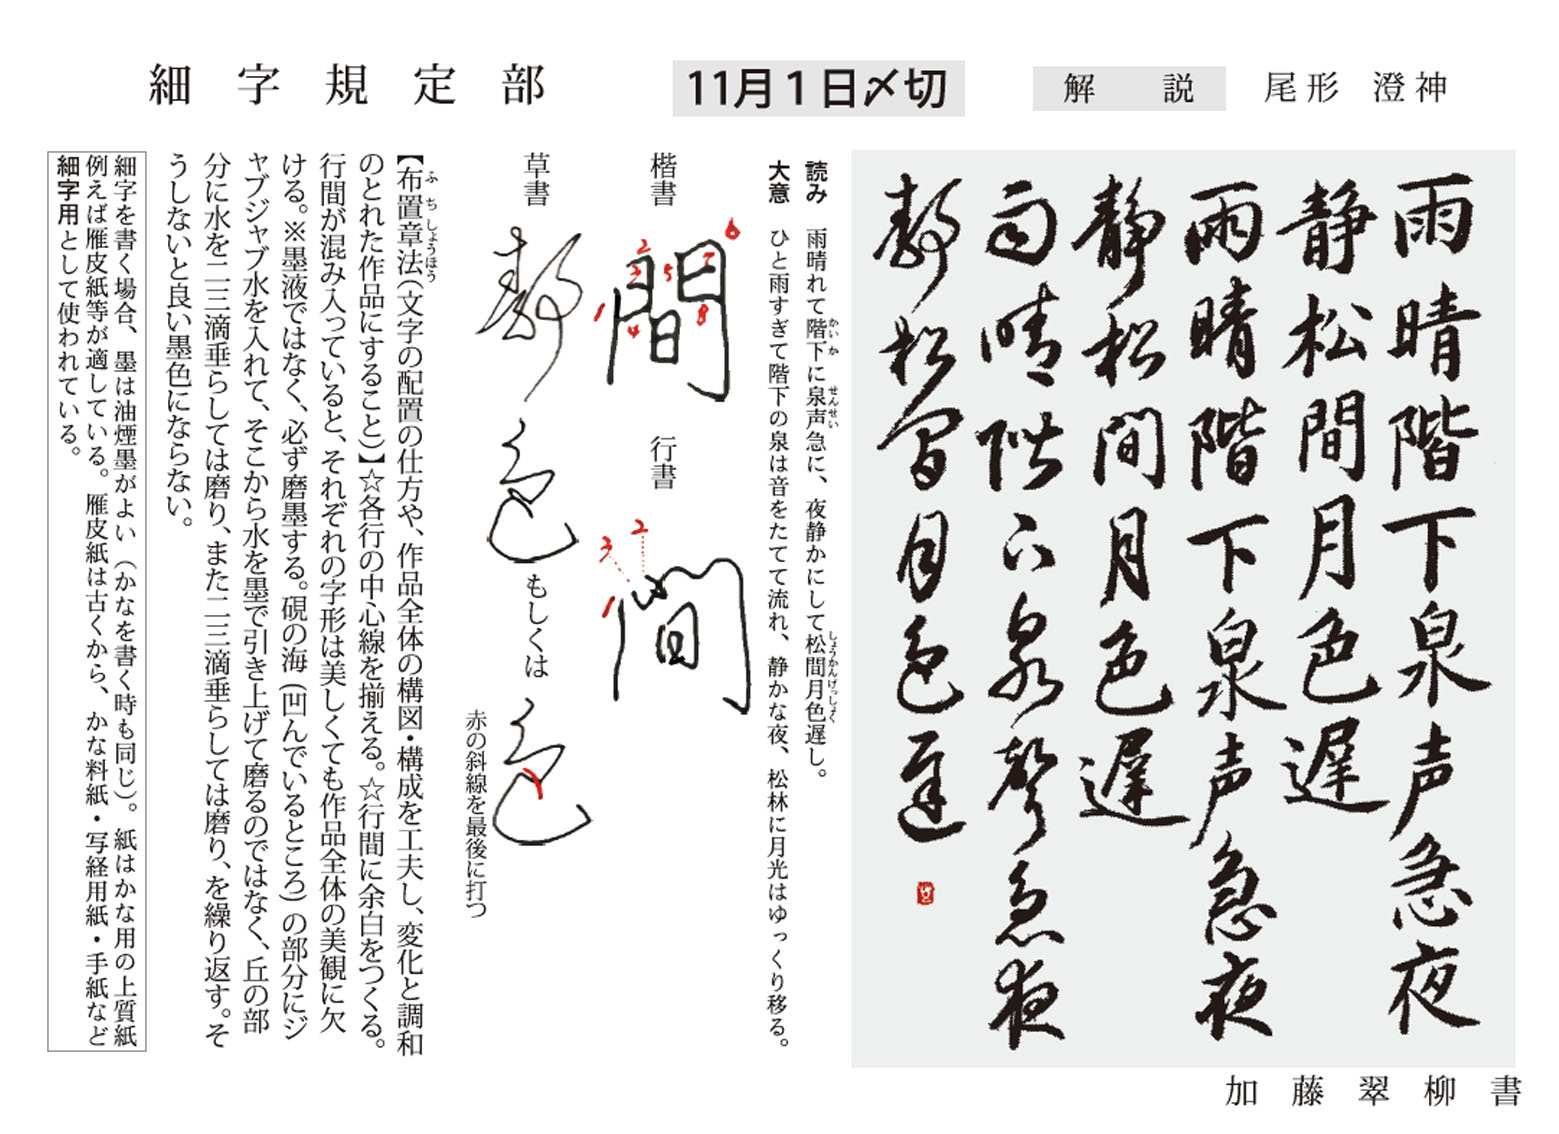 細字規定部
11月1日〆切
解説　尾形 澄神
雨晴階下泉声急夜
静松間月色遅
雨晴階下泉声急夜
静松間月色遅
雨晴階下泉聲急夜
静松間月色遅
加藤翠柳書
読み　雨晴れて階下に泉声急に、夜静かにして松間月色遅し。
かいか　せんせい　しょうかんげっしょく
大意　ひと雨すぎて階下の泉は音をたてて流れ、静かな夜、松林に月光はゆっくり移る。
楷書　間
1 2 3 4 5 6 7 8
行書　間
1 2 3
草書　静　色　もしくは　色
赤の斜線を最後に打つ
【布置章法(文字の配置の仕方や、作品全体の構図・構成を工夫し、変化と調和
ふちしょうほう
のとれた作品にすること)】☆各行の中心線を揃える。☆行間に余白をつくる。
行間が混み入っていると、それぞれの字形は美しくても作品全体の美観に欠
ける。※墨液ではなく、必ず磨墨する。硯の海(凹んでいるところ)の部分にジ
ャブジャブ水を入れて、そこから水を墨で引き上げて磨るのではなく、丘の部
分に水を二三滴垂らしては磨り、また二三滴垂らしては磨り、を繰り返す。そ
うしないと良い墨色にならない。
細字を書く場合、墨は油煙墨がよい(かなを書く時も同じ)。紙はかな用の上質紙
例えば雁皮紙等が適している。雁皮紙は古くから、かな料紙・写経用紙・手紙など
細字用として使われている。